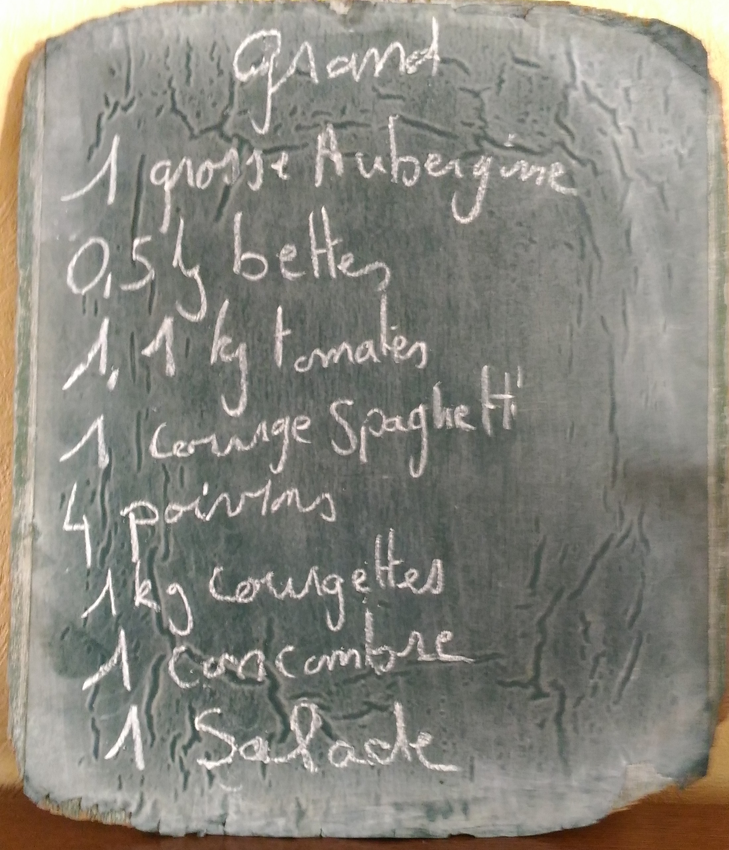 Grand
1 grosse Aubergine
0,5 kg bettes
1,1 kg tomates
1 courge Spaghetti
4 poivrons
1 kg courgettes
1 concombre
1 Salade